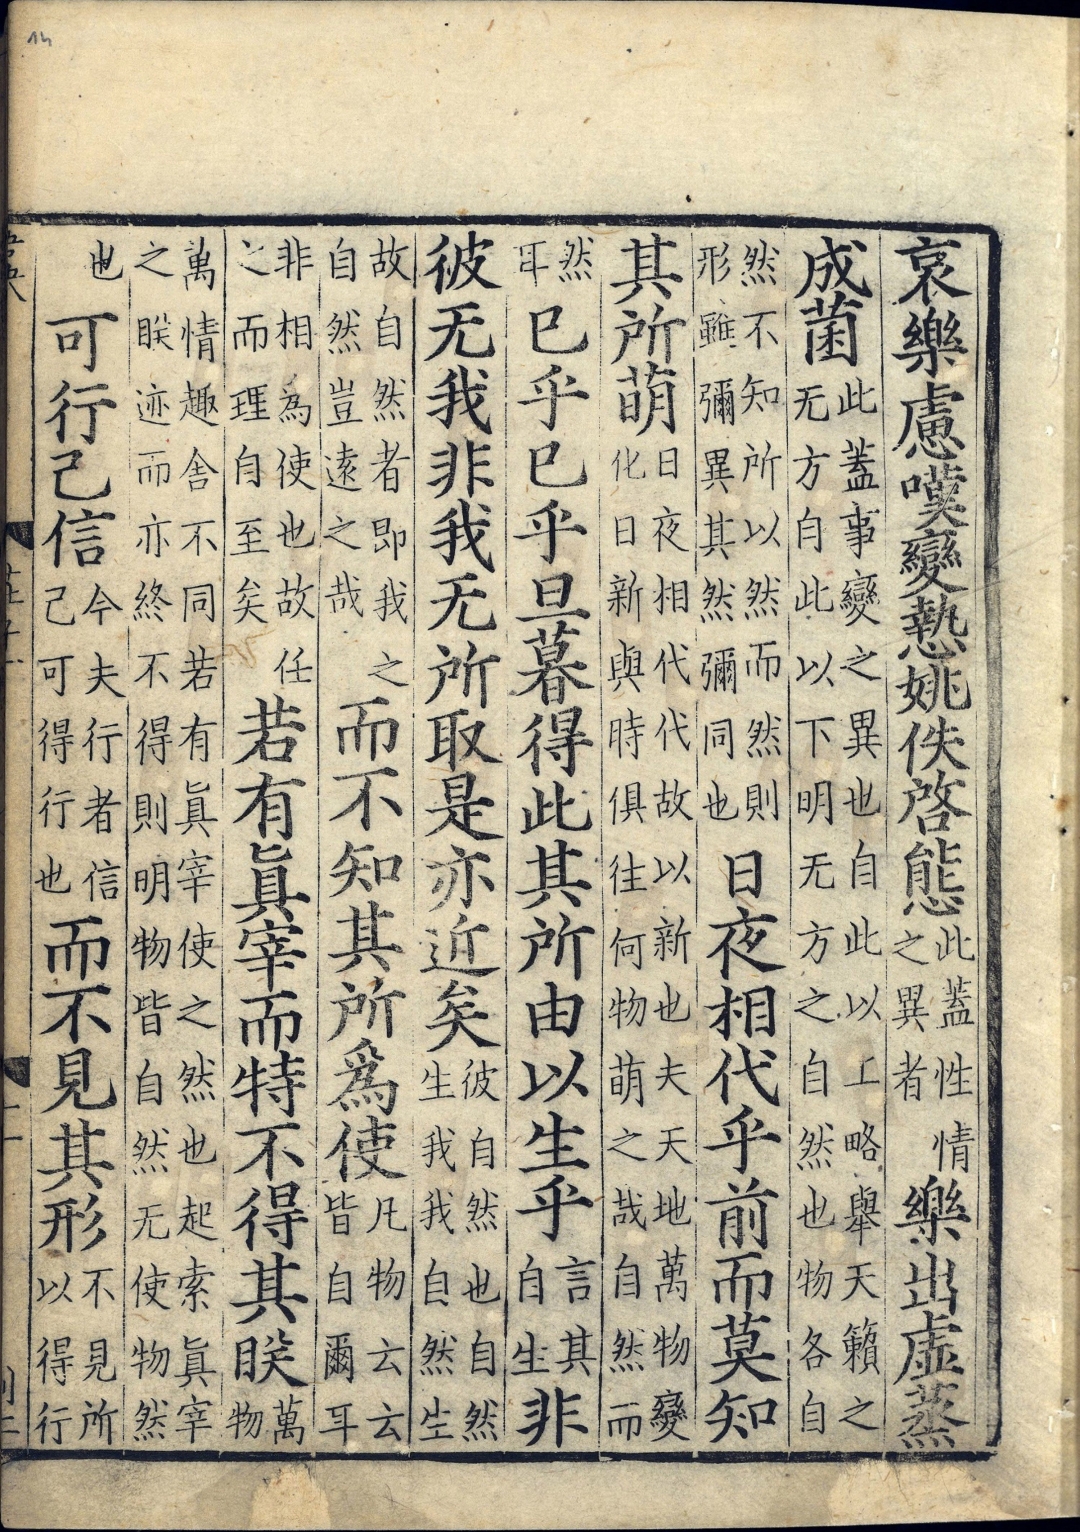 哀樂慮嘆變慹姚佚啓態此蓋性情之異者樂出虛蒸
成菌此蓋事變之異也自此以上略舉天籟之无方自此以下明无方之自然也物各自
然不知所以然而然則形雖彌異其然彌同也日夜相代乎前而莫知
其所萌日夜相代代故以新也夫天地萬物變化日新與時俱往何物萌之哉自然而
然耳已乎已乎旦暮得此其所由以生乎言其自生非
彼无我非我无所取是亦近矣彼自然也自然生我我自然生
故自然者卽我之自然豈遠之哉而不知其所爲使凡物云云皆自爾耳
非相爲使也故任之而理自至矣若有眞宰而特不得其眹萬物
萬情趣舍不同若有眞宰使之然也起索眞宰之眹迹而亦終不得則明物皆自然无使物然
也可行己信今夫行者信己可得行也而不見其形不見所以得行